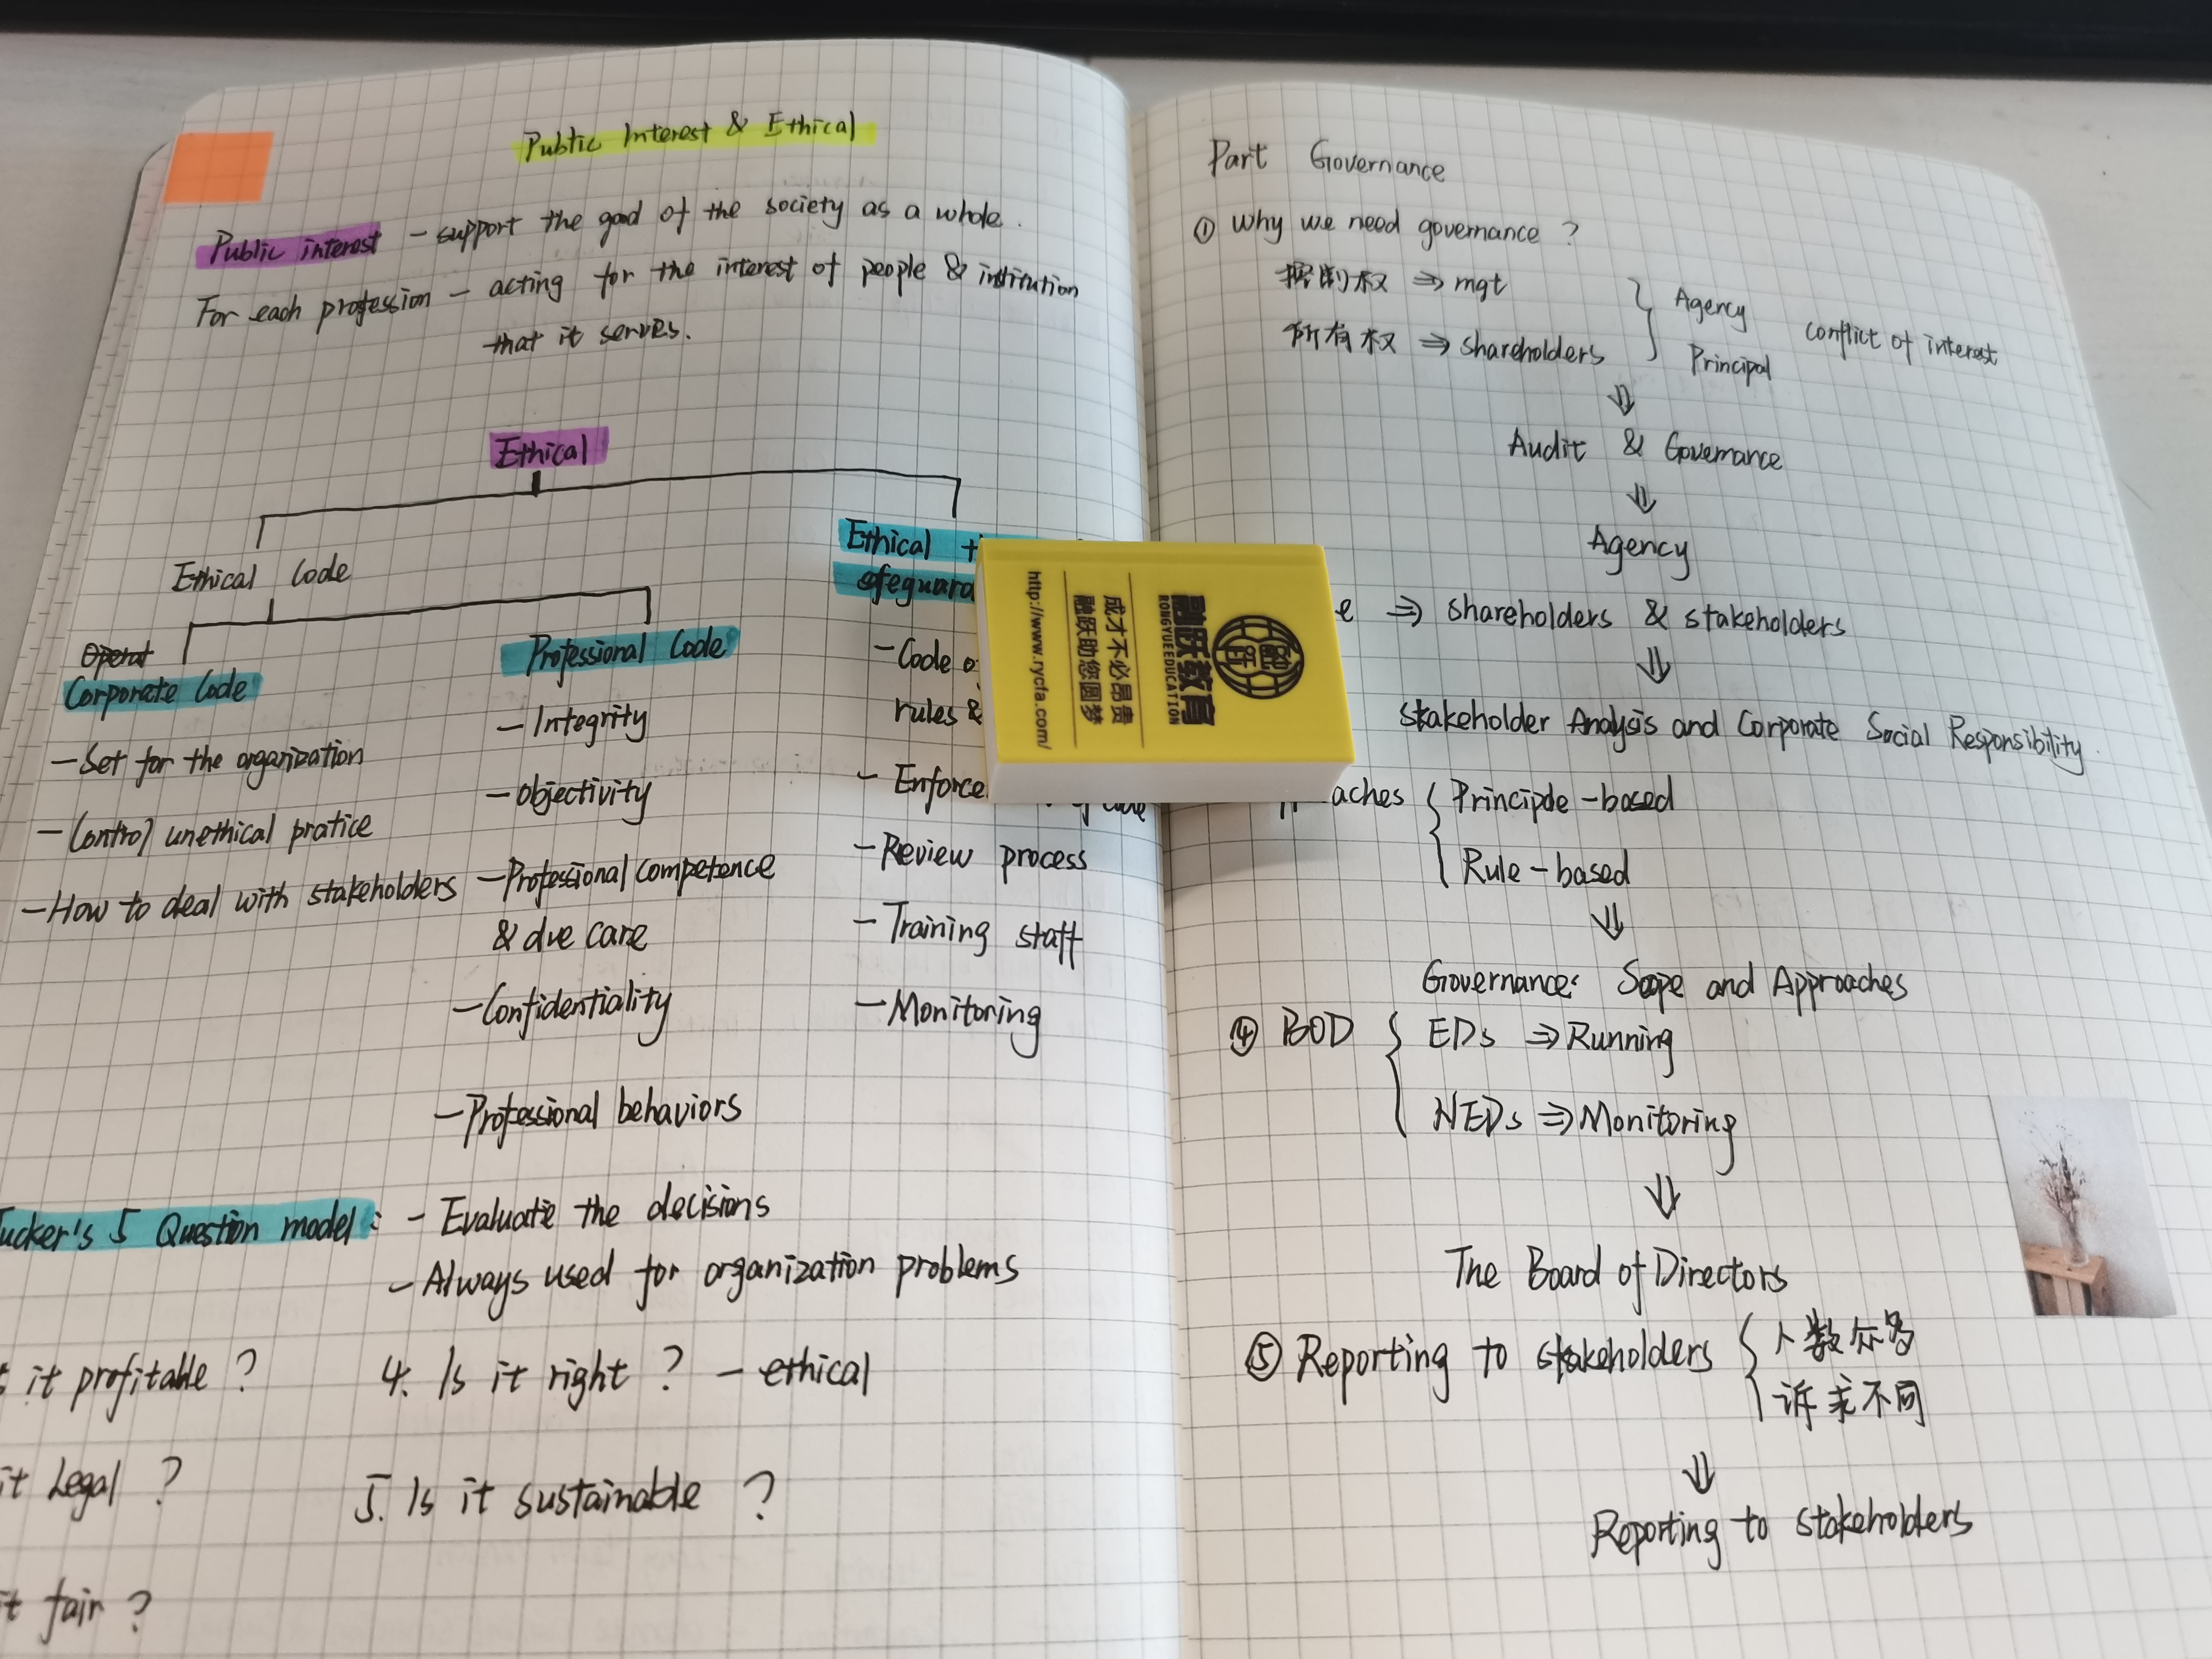 Public Interest & Ethical
Public interest - support the good of the society as a whole.
For each profession - acting for the interest of people & institution
that it serves.
Ethical
Ethical Code
Operat
Corporate Code
- Set for the organization
- Control unethical pratice
- How to deal with stakeholders
Professional Code
- Integrity
- Objectivity
- Professional competence
& due care
- Confidentiality
- Professional behaviors
Ethical
- Code
rules &
- Review process
- Training staff
- Monitoring
5 Question model: - Evaluate the decisions
- Always used for organization problems
it profitable?
it Legal?
it fair?
4. Is it right? - ethical
5. Is it sustainable?
Part Governance
① Why we need governance?
控制权 ⇒ mgt
所有权 ⇒ shareholders
Agency
Principal
conflict of interest
⇓
Audit & Governance
⇓
Agency
⇒ shareholders & stakeholders
⇓
Stakeholder Analysis and Corporate Social Responsibility.
{ Principle-based
Rule-based
⇓
Governance: Scope and Approaches
④ BOD { EDs ⇒ Running
NEDs ⇒ Monitoring
⇓
The Board of Directors
⑤ Reporting to stakeholders { 人数众多
诉求不同
⇓
Reporting to stakeholders
融跃教育
RONGYUEEDUCATION
成才不必昂贵
融跃助您圆梦
http://www.rycfa.com/